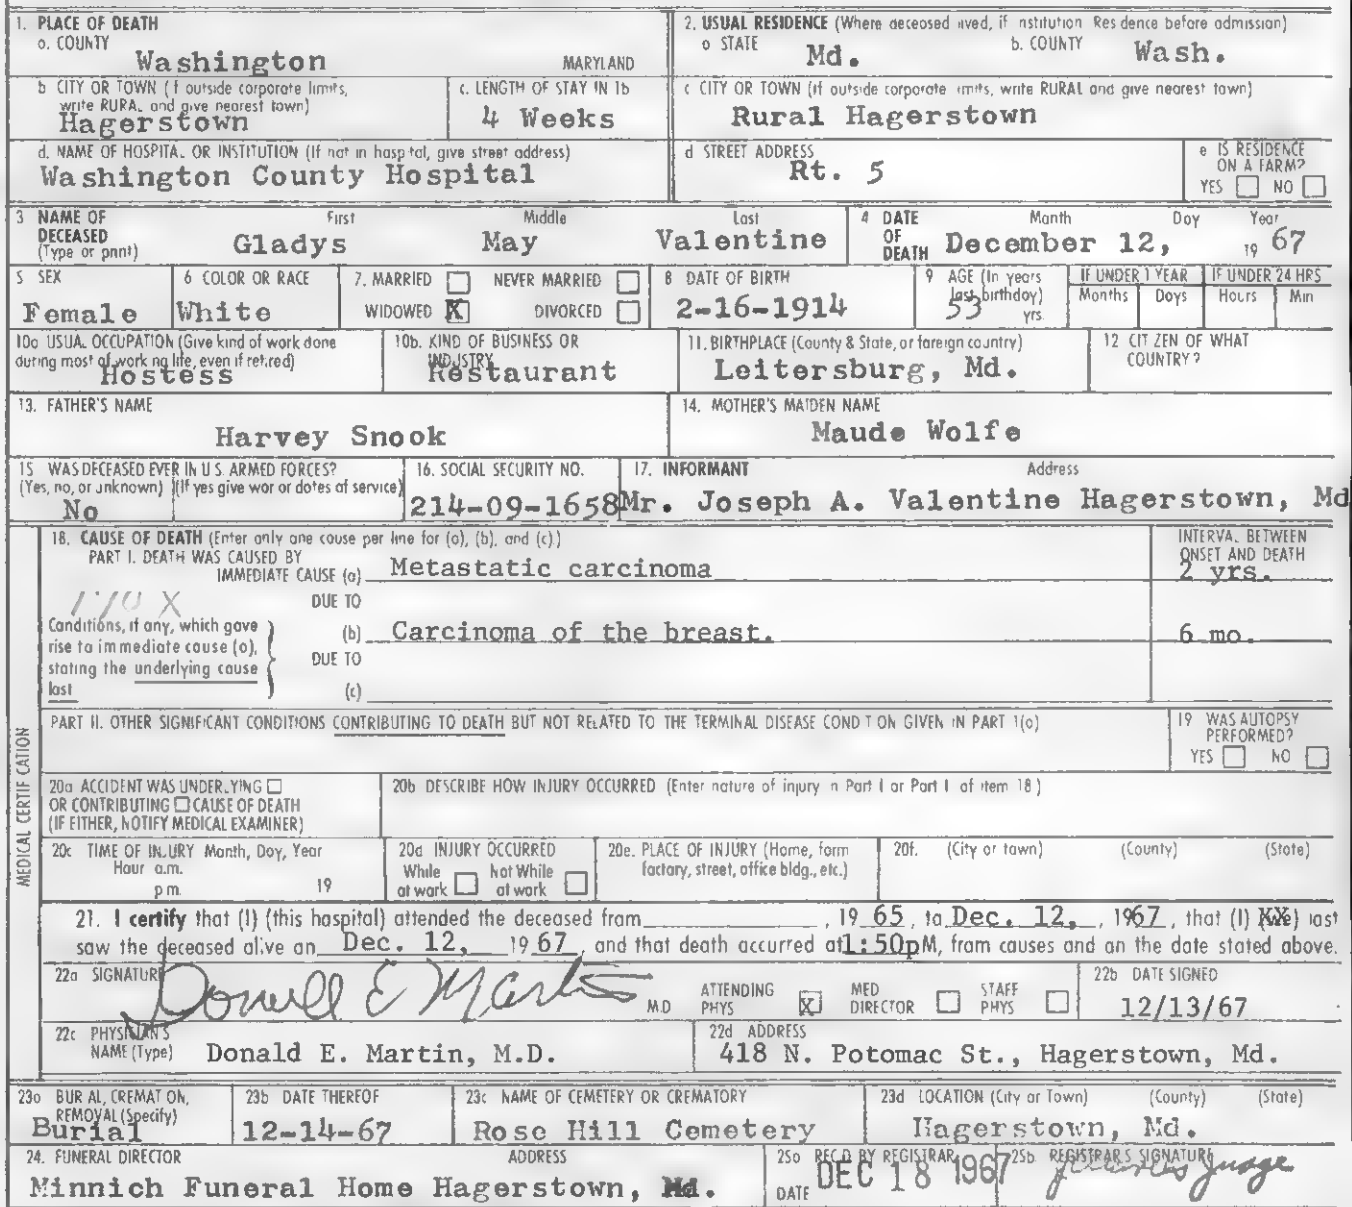 1. PLACE OF DEATH
a. COUNTY
Washington MARYLAND
2. USUAL RESIDENCE (Where deceased lived, if institution Residence before admission)
a STATE b. COUNTY
Md. Wash.
b CITY OR TOWN (if outside corporate limits, write RURAL and give nearest town)
Hagerstown
c. LENGTH OF STAY IN 1b
4 Weeks
c CITY OR TOWN (if outside corporate limits, write RURAL and give nearest town)
Rural Hagerstown
d. NAME OF HOSPITAL OR INSTITUTION (If not in hospital, give street address)
Washington County Hospital
d STREET ADDRESS
Rt. 5
e IS RESIDENCE ON A FARM?
YES NO
3 NAME OF DECEASED (Type or print)
First Middle Last
Gladys May Valentine
4 DATE OF DEATH
Month Day Year
December 12, 19 67
5 SEX
Female
6 COLOR OR RACE
White
7. MARRIED NEVER MARRIED
WIDOWED X DIVORCED
8 DATE OF BIRTH
2-16-1914
9 AGE (In years last birthday)
53 yrs.
IF UNDER 1 YEAR
Months Days
IF UNDER 24 HRS
Hours Min
10a USUAL OCCUPATION (Give kind of work done during most of working life, even if retired)
Hostess
10b. KIND OF BUSINESS OR INDUSTRY
Restaurant
11. BIRTHPLACE (County & State, or foreign country)
Leitersburg, Md.
12 CITIZEN OF WHAT COUNTRY?
13. FATHER'S NAME
Harvey Snook
14. MOTHER'S MAIDEN NAME
Maude Wolfe
15 WAS DECEASED EVER IN U.S. ARMED FORCES?
(Yes, no, or unknown) (If yes give war or dates of service)
No
16. SOCIAL SECURITY NO.
214-09-1658
17. INFORMANT Address
Mr. Joseph A. Valentine Hagerstown, Md
MEDICAL CERTIFICATION
18. CAUSE OF DEATH (Enter only one cause per line for (a), (b), and (c).)
PART I. DEATH WAS CAUSED BY
IMMEDIATE CAUSE (a) Metastatic carcinoma
INTERVAL BETWEEN ONSET AND DEATH
2 yrs.
170X
DUE TO
Conditions, if any, which gave rise to immediate cause (a), stating the underlying cause last
(b) Carcinoma of the breast. 6 mo.
DUE TO
(c)
PART II. OTHER SIGNIFICANT CONDITIONS CONTRIBUTING TO DEATH BUT NOT RELATED TO THE TERMINAL DISEASE CONDITION GIVEN IN PART 1(a)
19 WAS AUTOPSY PERFORMED?
YES NO
20a ACCIDENT WAS UNDERLYING
OR CONTRIBUTING CAUSE OF DEATH
(IF EITHER, NOTIFY MEDICAL EXAMINER)
20b DESCRIBE HOW INJURY OCCURRED (Enter nature of injury in Part I or Part I of item 18)
20c TIME OF INJURY Month, Day, Year
Hour a.m.
p m. 19
20d INJURY OCCURRED
While at work Not While at work
20e. PLACE OF INJURY (Home, farm factory, street, office bldg., etc.)
20f. (City or town) (County) (State)
21. I certify that (I) (this hospital) attended the deceased from 19 65, to Dec. 12, , 1967, that (I) (XXe) last
saw the deceased alive on Dec. 12, 19 67, and that death occurred at 1:50pM, from causes and on the date stated above.
22a SIGNATURE
Donald E Martin M.D
ATTENDING PHYS X MED DIRECTOR STAFF PHYS
22b DATE SIGNED
12/13/67
22c PHYSICIAN'S NAME (Type)
Donald E. Martin, M.D.
22d ADDRESS
418 N. Potomac St., Hagerstown, Md.
23a BURIAL, CREMATION, REMOVAL (Specify)
Burial
23b DATE THEREOF
12-14-67
23c NAME OF CEMETERY OR CREMATORY
Rose Hill Cemetery
23d LOCATION (City or Town) (County) (State)
Hagerstown, Md.
24. FUNERAL DIRECTOR ADDRESS
Minnich Funeral Home Hagerstown, Md.
25a REC'D BY REGISTRAR
DATE DEC 18 1967
25b REGISTRAR'S SIGNATURE
Judge